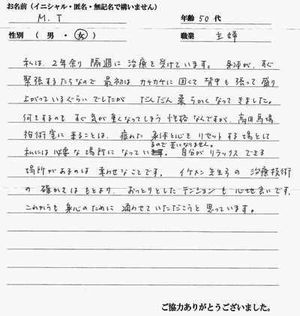 お名前（イニシャル・匿名・無記名で構いません）
M.T
年齢 50代
性別（男・女）
職業 主婦
私は、2年余り隔週に治療を受けています。身体が、すぐ
緊張するたちなので最初はカチカチに固くて背中も張って盛り
上がっているくらいでしたが だんだん柔らかくなってきました。
何をするのも すぐ気が重くなってしまう性格なんですが、高田馬場
施術室に来ることは、疲れた身体と心をリセットする場として
私には必要な場所になっていて
るので苦になりません。
自分がリラックスできる
場所があるのは幸せなことです。イケメン先生の治療技術
の確かさはもとより、おっとりとしたテンションも心地良いです。
これからも身心のために通わせていただこうと思っています。
ご協力ありがとうございました。